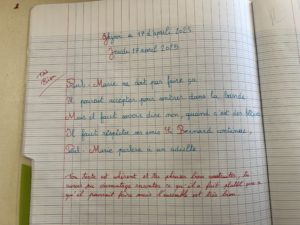 le 17 avril 2025
Jeudi 17 avril 2025
Très
Bien
Paul-Marie ne doit pas faire ça
Il pourrait accepter pour entrer dans la bande
Mais il faut savoir dire non, quand c'est des bêtises
Il faut réfléchir si Bernard continue,
Paul-Marie parlera à un adulte.
Ton texte est cohérent et tes phrases bien construites, tu
aurais pu davantage raconter ce qu'il a fait plutôt que
qu'il pourrait faire mais l'ensemble est très bien.